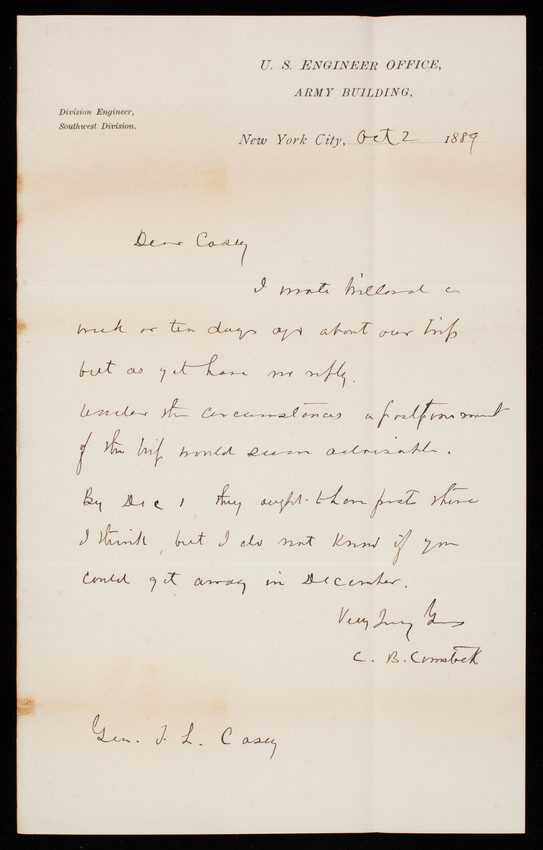 U. S. ENGINEER OFFICE,
ARMY BUILDING,
Division Engineer,
Southwest Division.
New York City, Oct 2 1889
Dear Casey
I wrote Willard a
week or ten days ago about our trip
but as yet have no reply.
Under the circumstances a postponement
of the trip would seem advisable.
By Dec 1 they ought to have frosts there
I think, but I do not know if you
could get away in December.
Very Truly Yours
C. B. Comstock
Gen. T. L. Casey